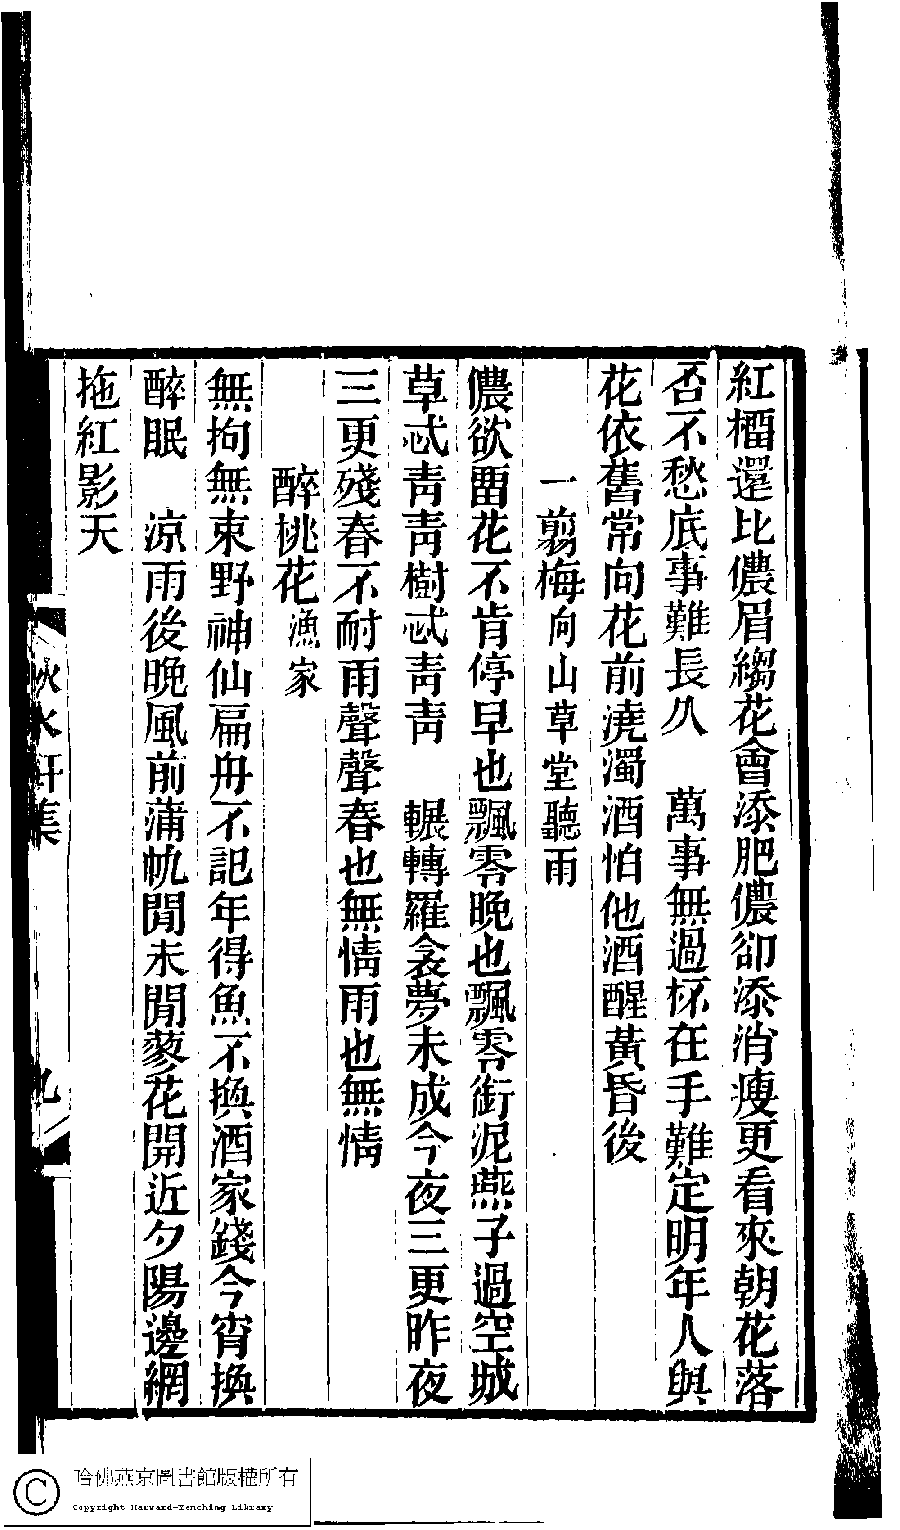 紅橊還比儂眉縐花會添肥儂卻添消瘦更看來朝花落
否不愁底事難長久　萬事無過杯在手難定明年人與
花依舊常向花前澆濁酒怕他酒醒黃昏後
一翦梅向山草堂聽雨
儂欲畱花不肯停早也飄零晚也飄零銜泥燕子過空城
草忒靑靑樹忒靑靑　輾轉羅衾夢未成今夜三更昨夜
三更殘春不耐雨聲聲春也無情雨也無情
醉桃花漁家
無拘無束野神仙扁舟不記年得魚不換酒家錢今宵換
醉眠　涼雨後晚風前蒲帆閒未閒蓼花開近夕陽邊網
拖紅影天
水軒集
九
哈佛燕京圖書館版權所有
Copyright Harvard-Yenching Library